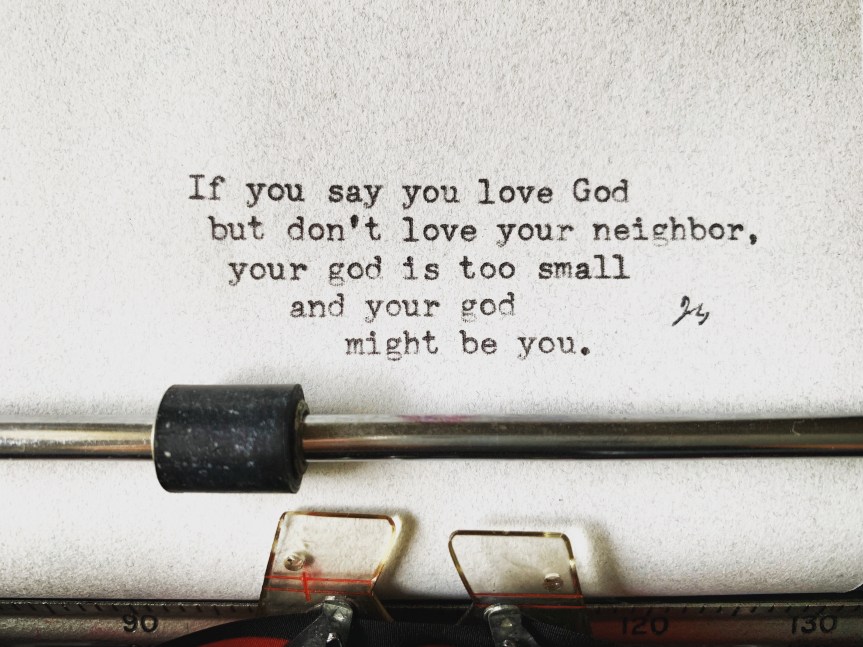 If you say you love God
but don't love your neighbor,
your god is too small
and your god
might be you.
90
120
130